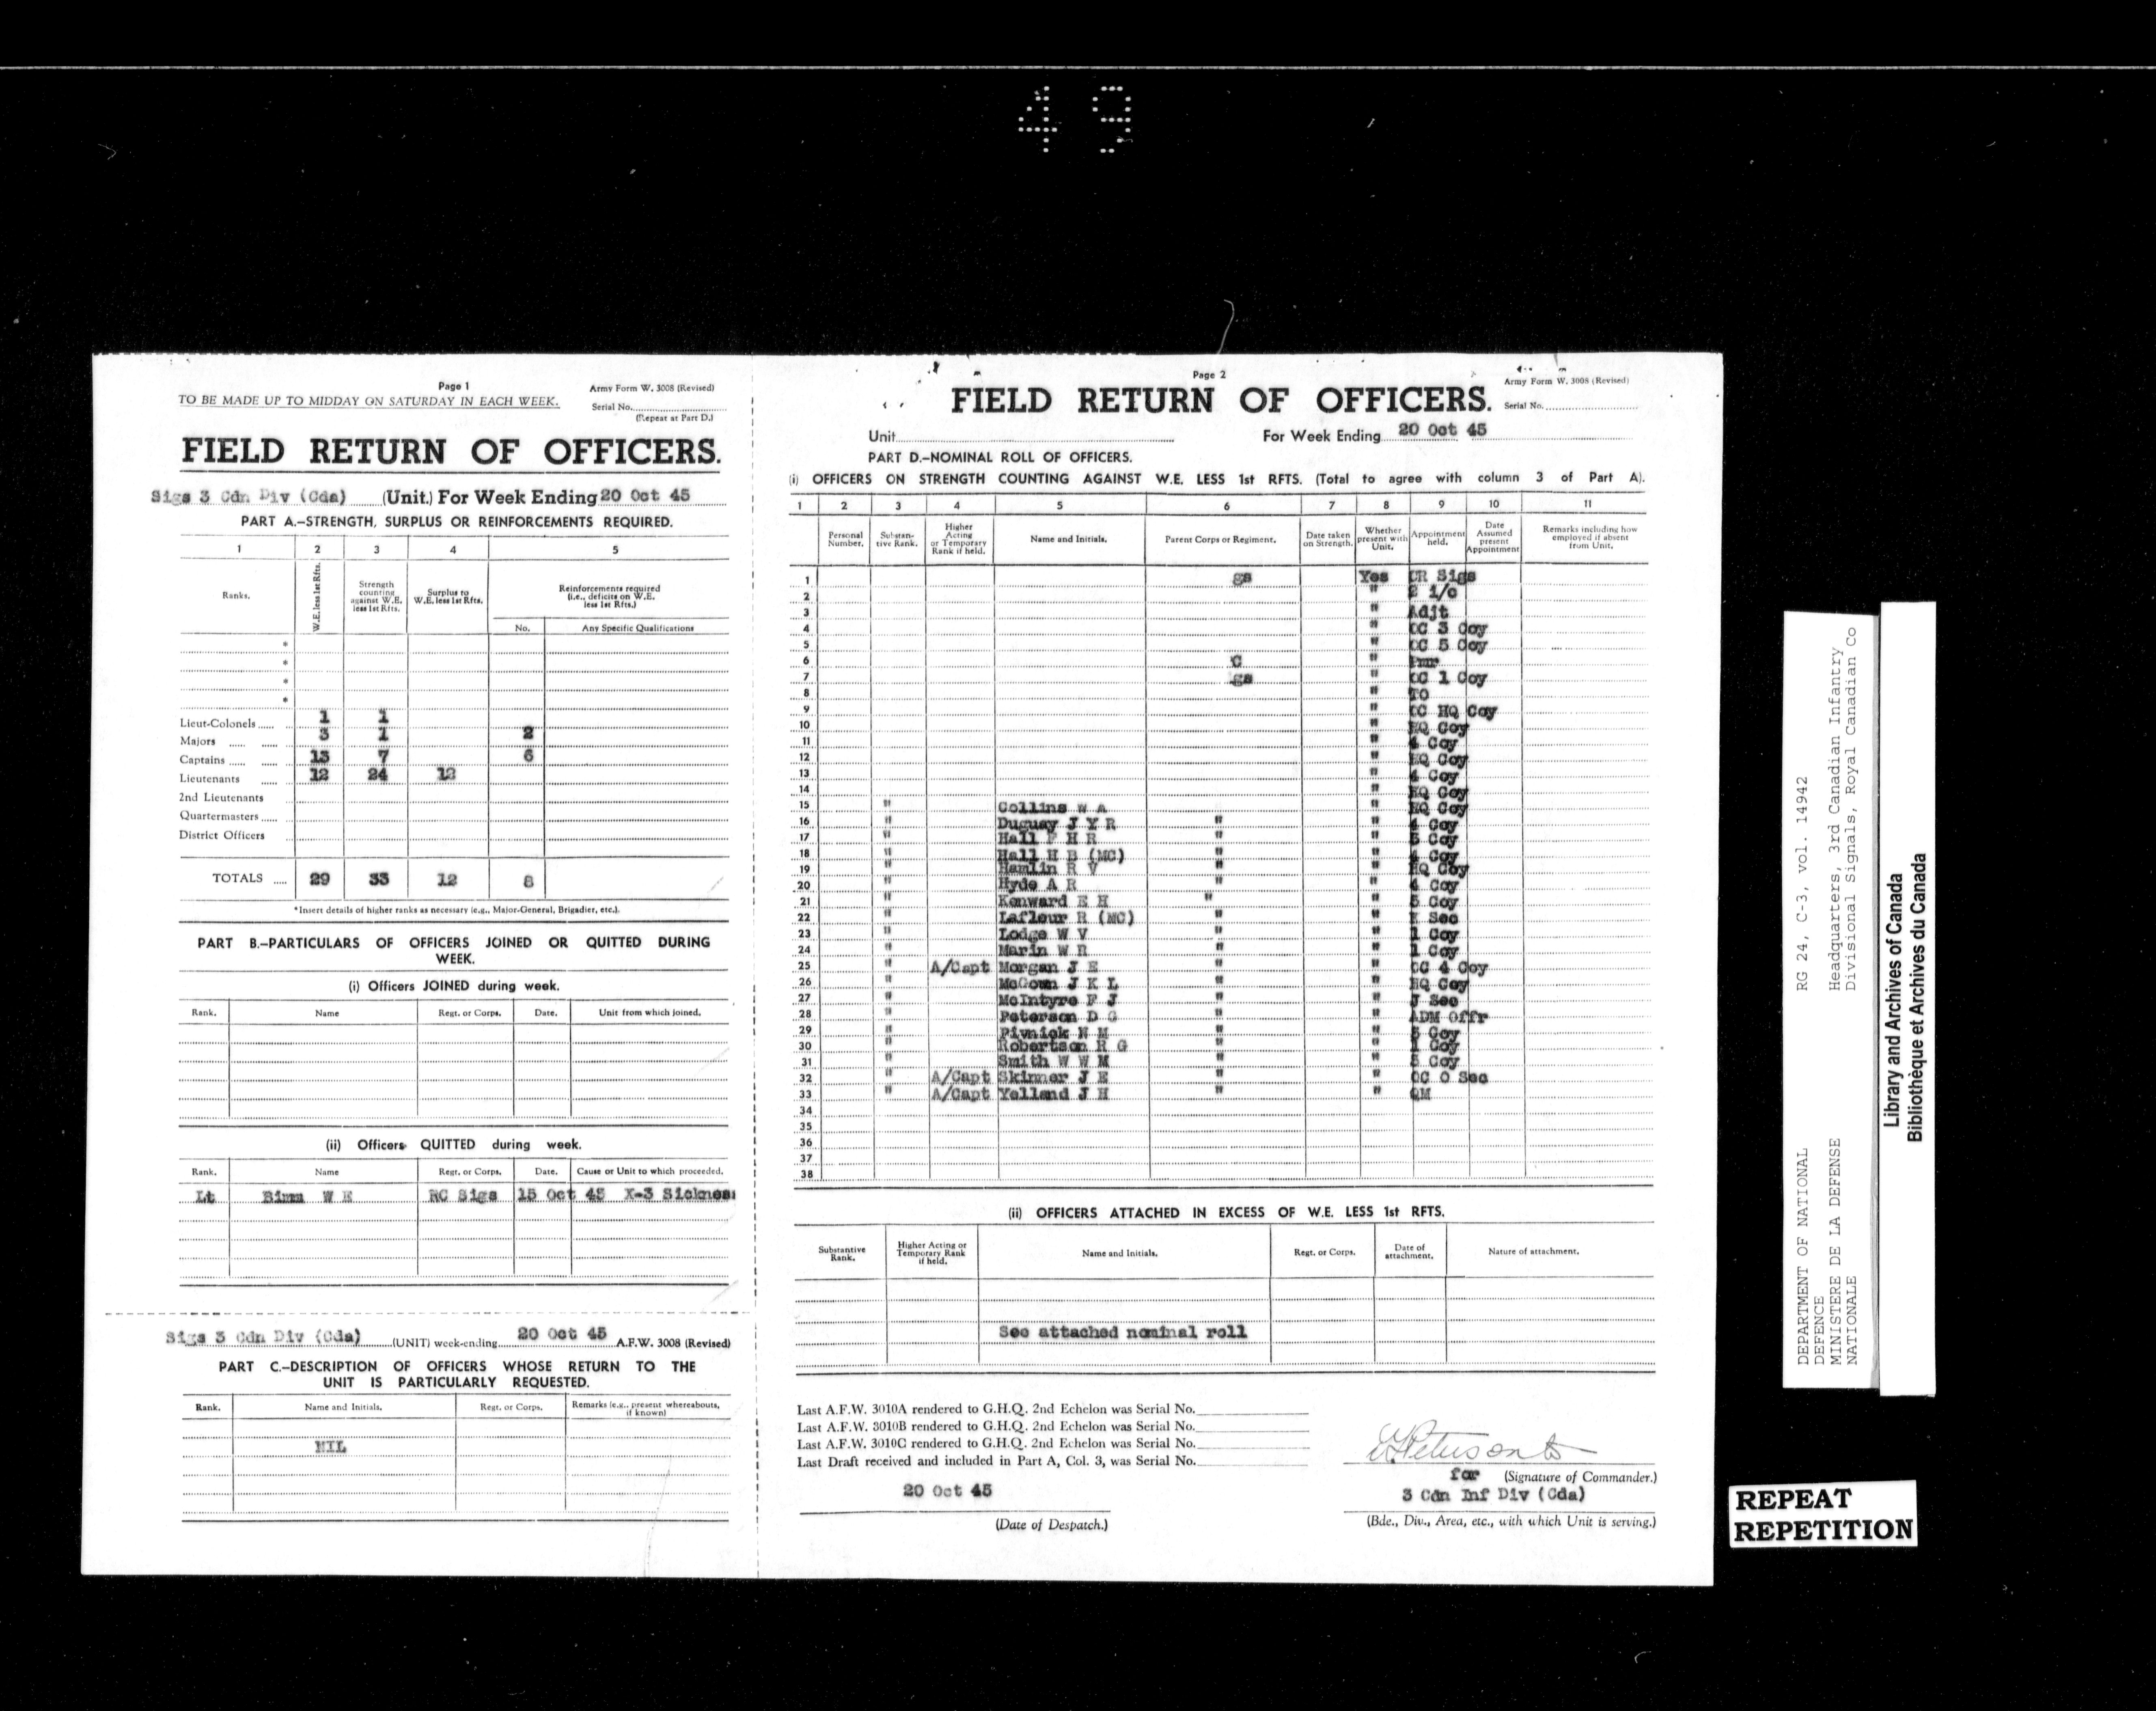 49
Page 1
Army Form W. 3008 (Revised)
TO BE MADE UP TO MIDDAY ON SATURDAY IN EACH WEEK.
Serial No.
(Repeat at Part D.)
FIELD RETURN OF OFFICERS.
Sigs 3 Cdn Div (Cda) (Unit.) For Week Ending 20 Oct 45
PART A.–STRENGTH, SURPLUS OR REINFORCEMENTS REQUIRED.
1 2 3 4 5
Ranks. W.E. less 1st Rfts. Strength counting against W.E. less 1st Rfts. Surplus to W.E. less 1st Rfts. Reinforcements required (i.e., deficits on W.E. less 1st Rfts.)
No. Any Specific Qualifications
*
*
*
*
Lieut-Colonels 1 1
Majors 3 1 2
Captains 13 7 6
Lieutenants 12 24 12
2nd Lieutenants
Quartermasters
District Officers
TOTALS 29 33 12 8
*Insert details of higher ranks as necessary (e.g., Major-General, Brigadier, etc.).
PART B.–PARTICULARS OF OFFICERS JOINED OR QUITTED DURING
WEEK.
(i) Officers JOINED during week.
Rank. Name Regt. or Corps. Date. Unit from which joined.
(ii) Officers QUITTED during week.
Rank. Name Regt. or Corps. Date. Cause or Unit to which proceeded.
Lt W E RC Sigs 15 Oct 45 X-3 Sickness
Sigs 3 Cdn Div (Cda) (UNIT) week-ending 20 Oct 45 A.F.W. 3008 (Revised)
PART C.–DESCRIPTION OF OFFICERS WHOSE RETURN TO THE
UNIT IS PARTICULARLY REQUESTED.
Rank. Name and Initials. Regt. or Corps. Remarks (e.g., present whereabouts, if known)
NIL
Page 2
Army Form W. 3008 (Revised)
FIELD RETURN OF OFFICERS. Serial No.
Unit For Week Ending 20 Oct 45
PART D.–NOMINAL ROLL OF OFFICERS.
(i) OFFICERS ON STRENGTH COUNTING AGAINST W.E. LESS 1st RFTS. (Total to agree with column 3 of Part A).
1 2 3 4 5 6 7 8 9 10 11
Personal Number. Substantive Rank. Higher Acting or Temporary Rank if held. Name and Initials. Parent Corps or Regiment. Date taken on Strength. Whether present with Unit. Appointment held. Date Assumed present Appointment Remarks including how employed if absent from Unit.
1 gs Yes CR Sigs
2 " 2 i/c
3 " Adjt
4 " OC 3 Coy
5 " OC 5 Coy
6 C " Pmr
7 gs " OC 1 Coy
8 " TO
9 " OC HQ Coy
10 " HQ Coy
11 " 4 Coy
12 " HQ Coy
13 " 4 Coy
14 " HQ Coy
15 " Collins W A " HQ Coy
16 " Duguay J Y R " " 4 Coy
17 " Hall F H R " " 5 Coy
18 " Hall H B (MC) " " 4 Coy
19 " Hamlin R V " " HQ Coy
20 " Hyde A R " " 4 Coy
21 " Kenward E H " " 5 Coy
22 " Lafleur R (MC) " " Sec
23 " Lodge W V " " 1 Coy
24 " Marin W R " " 1 Coy
25 " A/Capt Morgan J E " " OC 4 Coy
26 " McGoun J K L " " HQ Coy
27 " McIntyre F J " " J Sec
28 " Peterson D G " " ADM Offr
29 " Pivnick N M " " 5 Coy
30 " Robertson R G " " Coy
31 " Smith W W M " " 5 Coy
32 " A/Capt Skinner J E " " OC O Sec
33 " A/Capt Yelland J H " " QM
34
35
36
37
38
(ii) OFFICERS ATTACHED IN EXCESS OF W.E. LESS 1st RFTS.
Substantive Rank. Higher Acting or Temporary Rank if held. Name and Initials. Regt. or Corps. Date of attachment. Nature of attachment.
See attached nominal roll
Last A.F.W. 3010A rendered to G.H.Q. 2nd Echelon was Serial No.
Last A.F.W. 3010B rendered to G.H.Q. 2nd Echelon was Serial No.
Last A.F.W. 3010C rendered to G.H.Q. 2nd Echelon was Serial No.
Last Draft received and included in Part A, Col. 3, was Serial No.
20 Oct 45
(Date of Despatch.)
for (Signature of Commander.)
3 Cdn Inf Div (Cda)
(Bde., Div., Area, etc., with which Unit is serving.)
DEPARTMENT OF NATIONAL
DEFENCE
MINISTERE DE LA DEFENSE
NATIONALE
RG 24, C-3, vol. 14942
Headquarters, 3rd Canadian Infantry
Divisional Signals, Royal Canadian Co
Library and Archives of Canada
Bibliothèque et Archives du Canada
REPEAT
REPETITION